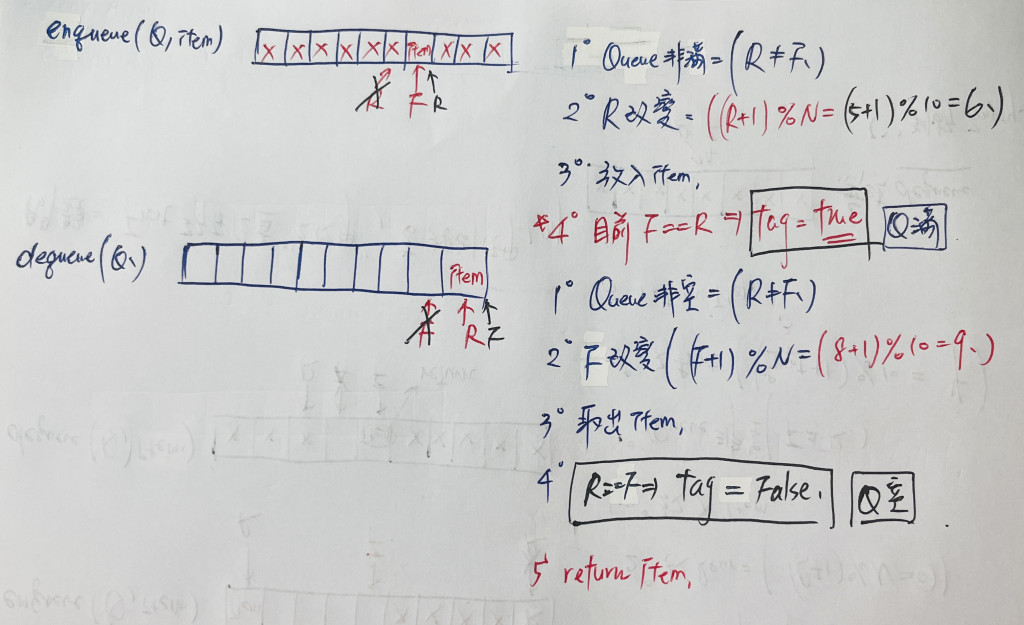 enqueue(Q, item)
X X X X X X item X X X
F R
1° Queue非滿=(R≠F、)
2° R改變=((R+1)%N=(5+1)%10=6、)
3° 放入item,
*4° 目前 F==R ⇒ tag=true Q滿
dequeue(Q、)
item
R F
1° Queue非空=(R≠F、)
2° F改變((F+1)%N=(8+1)%10=9、)
3° 取出item,
4° R==F⇒ tag=False. Q空
5° return item,